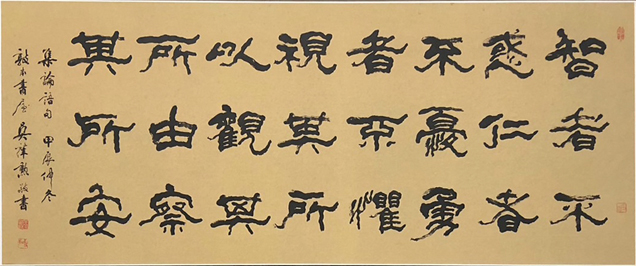 智者不
惑仁者
不憂勇
者不懼
視其所
以觀其
所由察
其所安
集論語句 甲辰仲冬
書屋 吳